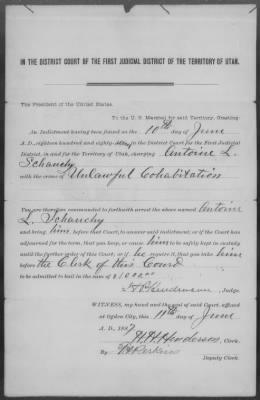 IN THE DISTRICT COURT OF THE FIRST JUDICIAL DISTRICT OF THE TERRITORY OF UTAH.
The President of the United States.
To the U. S. Marshal for said Territory, Greeting:
An Indictment having been found on the 10th day of June
A. D., eighteen hundred and eighty- in the District Court for the First Judicial
District, in and for the Territory of Utah, charging Antoine L.
Schanchy
with the crime of Unlawful Cohabitation
You are therefore commanded to forthwith arrest the above named Antoine
L. Schanchy
and bring him before that Court, to answer said indictment; or if the Court has
adjourned for the term, that you keep, or cause him to be safely kept in custody
until the further order of this Court; or if he require it, that you take him
before the Clerk of this Court
to be admitted to bail in the sum of $1000.00
H P Henderson, Judge.
WITNESS, my hand and the seal of said Court, affixed
at Ogden City, this 11th day of June
A. D., 1887
H. H. Henderson, Clerk.
By Perkins
Deputy Clerk.